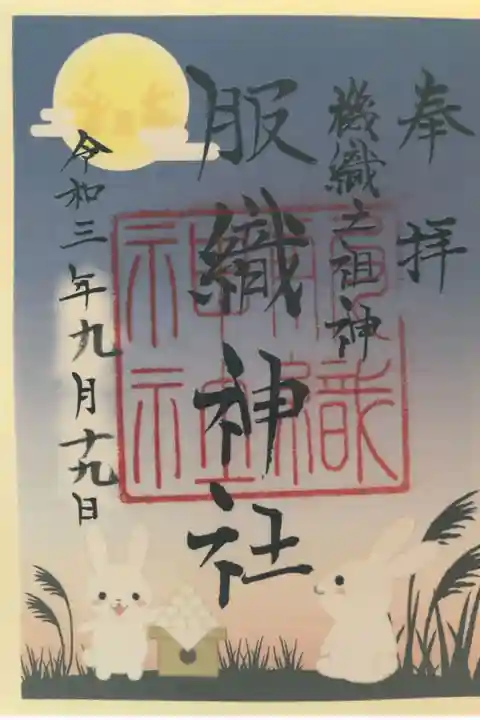 奉拝
機織之祖神
服織神社
令和三年九月十九日